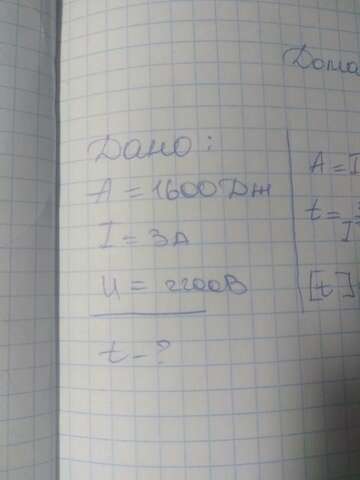 Дома
Дано:
A = 1600 Дж
I = 3А
U = 2200В
t - ?
A = I
t =
I
[t]